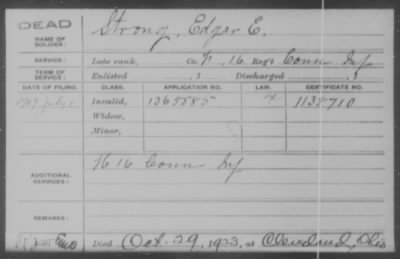 DEAD
NAME OF SOLDIER:
Strong, Edgar E.
SERVICE:
Late rank, Co. H, 16 Reg't Conn Inf
TERM OF SERVICE:
Enlisted , 1 Discharged , 1
DATE OF FILING. CLASS. APPLICATION NO. LAW. CERTIFICATE NO.
1907 July Invalid, 1365585 1138710
Widow,
Minor,
ADDITIONAL SERVICES:
H 16 Conn Inf
REMARKS:
Died Oct. 29, 1923, at Cleveland, Ohio